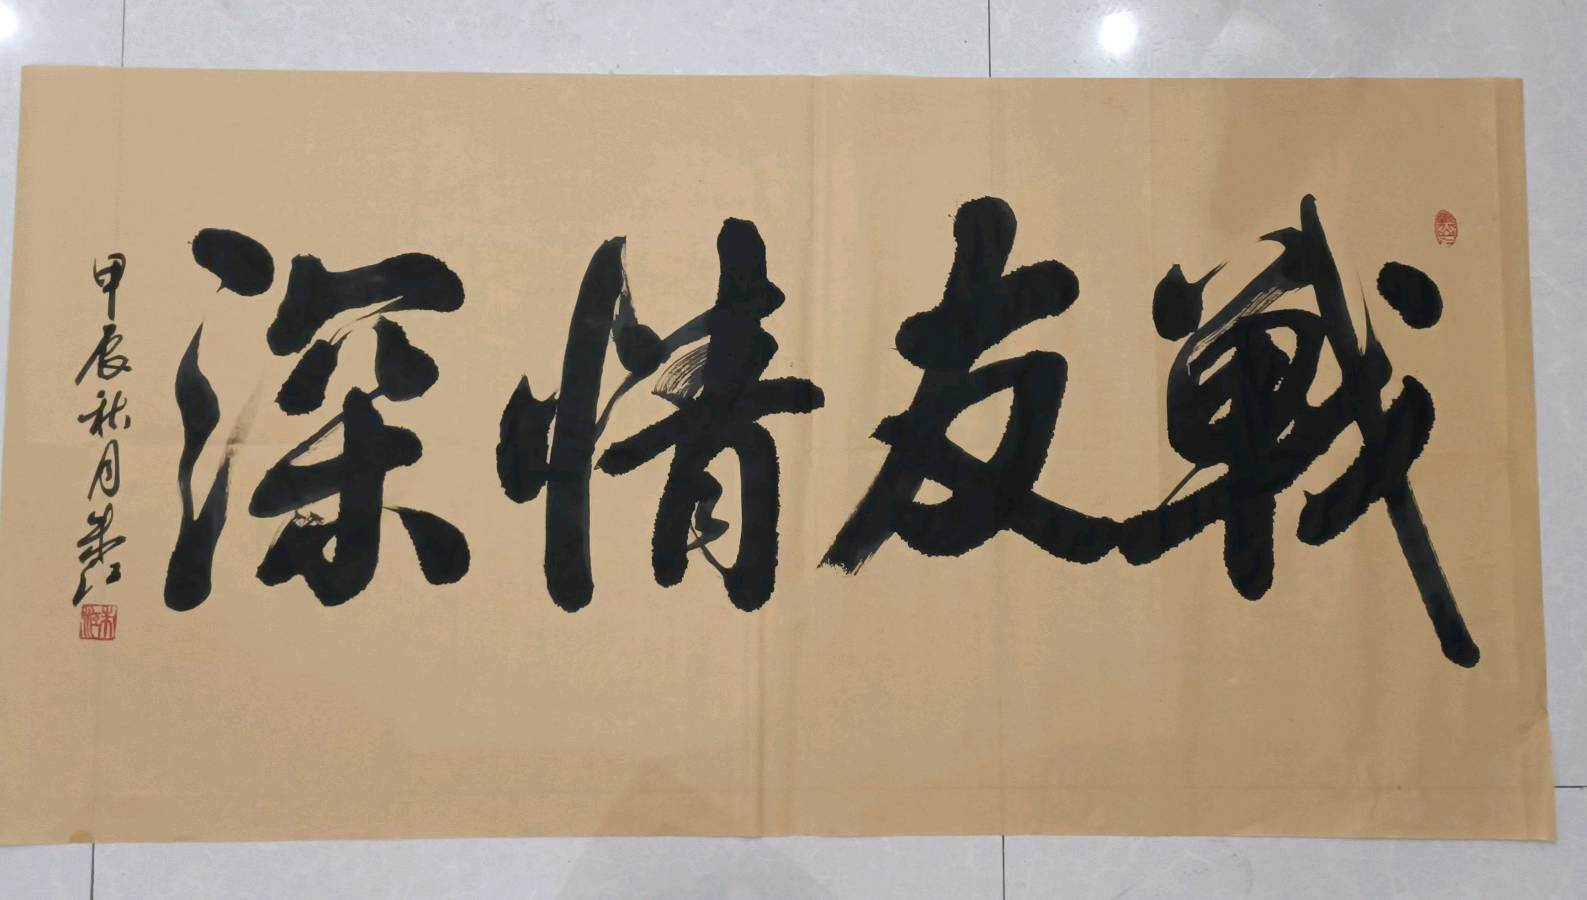 戰友情深
甲辰秋月朱江